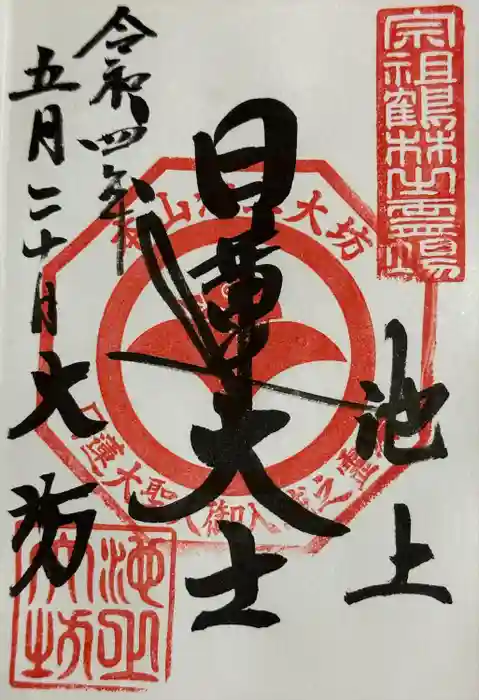 宗祖鶴林之靈場
池上
日蓮大士
山 大坊
日蓮大聖人御入滅之靈
令和四年
五月二十日
大坊
池上大坊